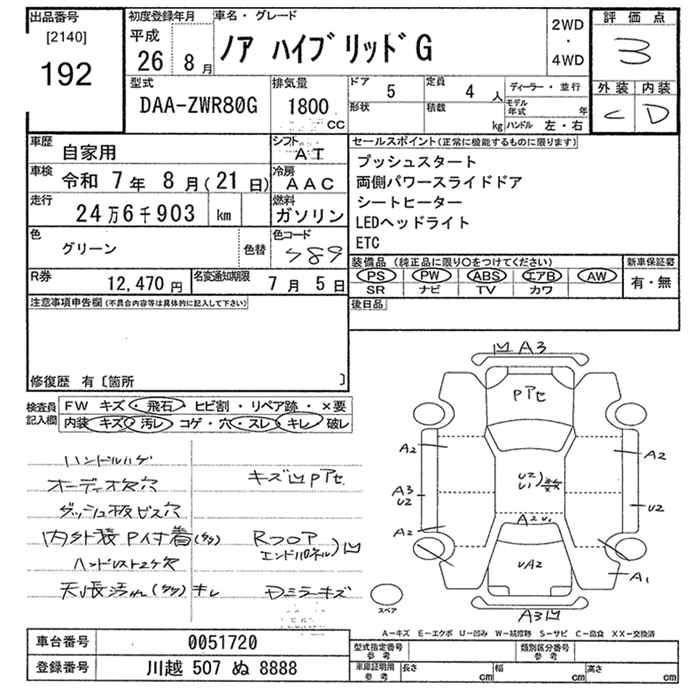 出品番号
[2140]
192
初度登録年月
平成
26 8 月
車名・グレード
ノア ハイブリッドG
2WD
・
4WD
評価点
3
外装 内装
C D
型式
DAA-ZWR80G
排気量
1800
CC
ドア
5
定員
4 人
ディーラー・並行
形状
積載
kg
モデル年式 年
ハンドル 左・右
車歴
自家用
シフト
AT
車検
令和 7 年 8 月(21 日)
冷房
AAC
走行
24 万 6 千 903 km
燃料
ガソリン
色
グリーン
色替
色コード
R券
12,470 円
名変通知期限
7 月 5 日
セールスポイント(正常に機能するものに限ります)
プッシュスタート
両側パワースライドドア
シートヒーター
LEDヘッドライト
ETC
装備品(純正品に限り○をつけてください)
新車保証書
PS PW ABS エアB AW
有・無
SR ナビ TV カワ
後日品
注意事項申告欄(不具合内容等は具体的に記入して下さい)
修復歴 有〔箇所 〕
検査員記入欄
FW キズ・飛石・ヒビ割・リペア跡・×要
内装 キズ・汚レ・コゲ・穴・スレ・キレ・破レ
ハンドルハゲ
オーディオ欠穴
ダッシュ板ビス穴
内外装P付着(多)
天張汚れ(多) キレ
キズ凹Pアセ
Rフロア
エンドパネル)凹
Dミラーキズ
A3
Pアセ
A2
A2
A3
U2
U2
U1
A2
U2
UA2
A1
A3凹
スペア
A-キズ E-エクボ U-凹み W-補修跡 S-サビ C-腐食 XX-交換済
車台番号
0051720
登録番号
川越 507 ぬ 8888
型式指定番号
参考
類別区分番号
参考
車庫証明用
参考
長さ cm 幅 cm 高さ cm